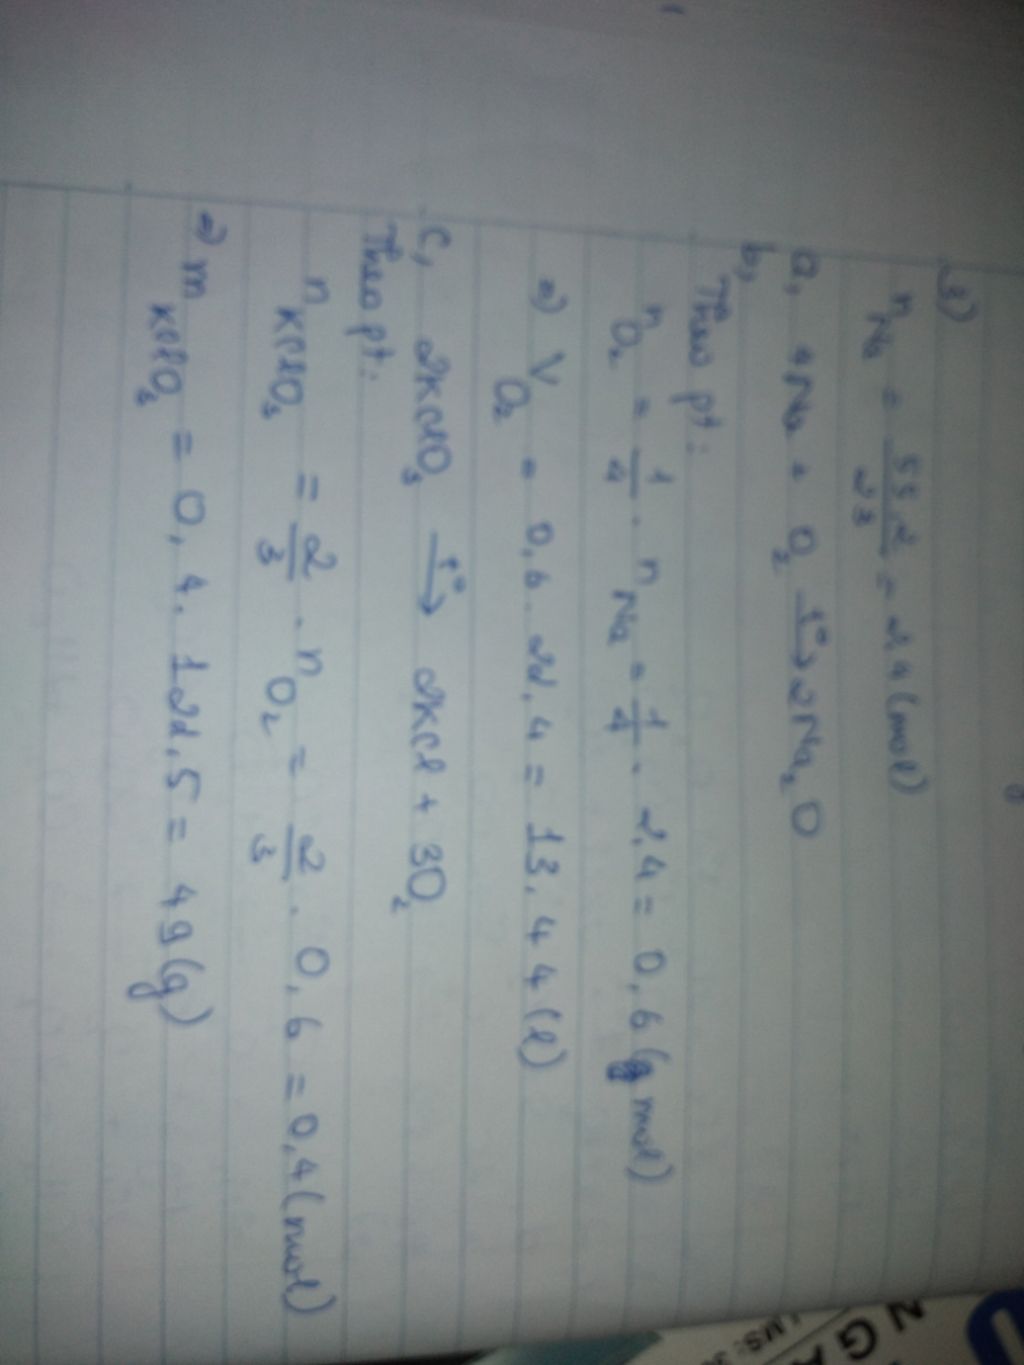 3)
n Na = 55,2 / 23 = 2,4 (mol)
a, 4Na + O₂ t°→ 2Na₂O
b,
Theo pt:
n O₂ = 1/4 . n Na = 1/4 . 2,4 = 0,6 (mol)
=) V O₂ = 0,6 . 22,4 = 13,44 (l)
c, 2KClO₃ t°→ 2KCl + 3O₂
Theo pt:
n KClO₃ = 2/3 . n O₂ = 2/3 . 0,6 = 0,4 (mol)
=) m KClO₃ = 0,4 . 122,5 = 49 (g)
NGA